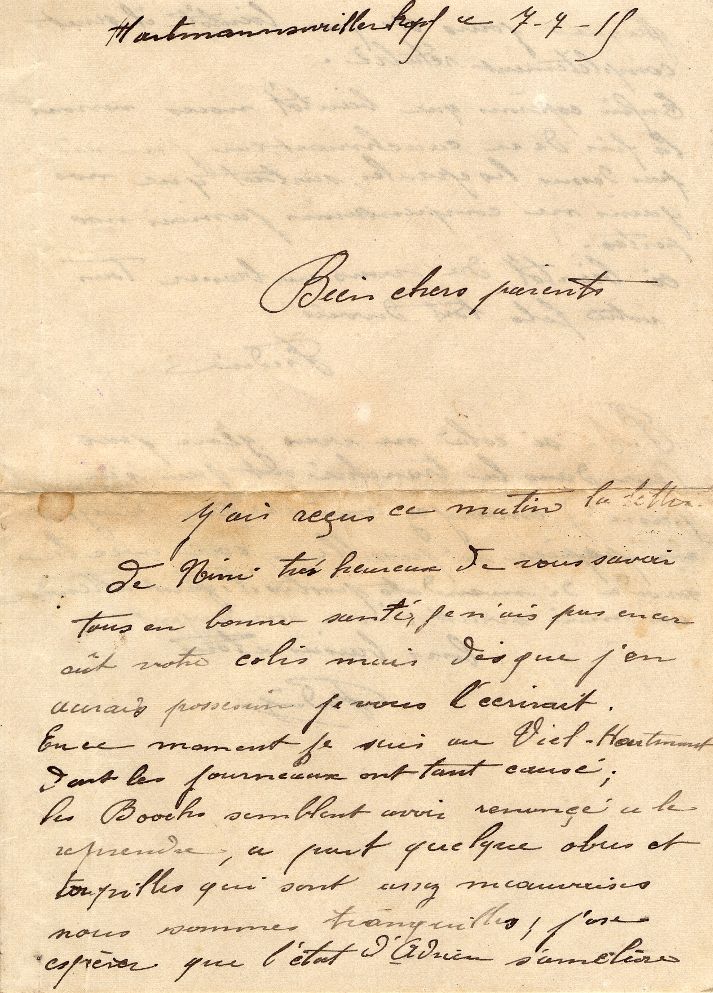 Hartmannswillerkopf le 7-4-15
Bien chers parents
J'ais reçus ce matin la lettre
de Nini très heureux de vous savoir
tous en bonne santé, je n'ais pas encor
eût votre colis mais des que j'en
aurais possesion je vous l'ecrirait.
En ce moment je suis au Viel-Hartmant
dont les journeaux ont tant causé ;
les Boochs semblent avoir renonçé a le
reprendre, a part quelque obus et
torpilles qui sont assez mauvaises
nous sommes tranquilles, j'ose
espérer que l'état d'Adrien s'amelióre